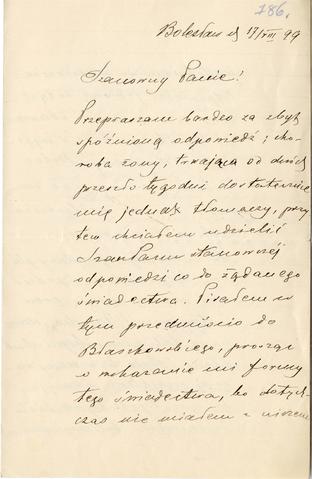 786.
Bolesław d 17/VIII 99
Szanowny Panie!
Przepraszam bardzo za zbyt
spóźnioną odpowiedź; cho-
roba żony, trwająca od dwóch
przeszło tygodni dostatecznie
mię jednak tłomaczy, przy
tem chciałem udzielić
Szan Panu stanowczej
odpowiedzi co do żądanego
świadectwa. Pisałem w
tym przedmiocie do
Błaszkowskiego, prosząc
o wskazanie mi formy
tego świadectwa, bo dotych-
czas nie miałem z niczem